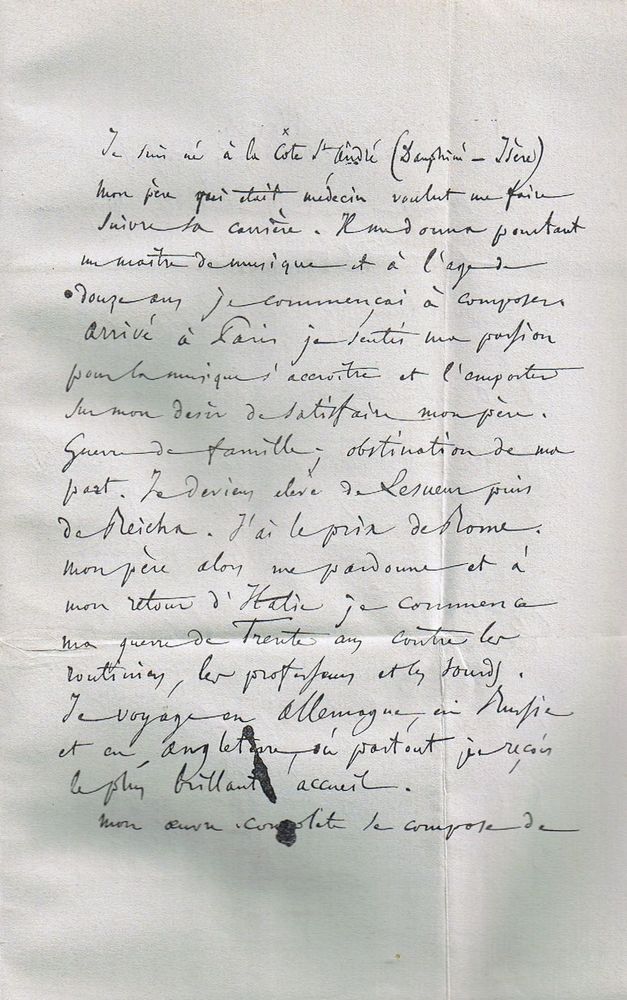 Je suis né à la Cote St André (Dauphiné – Isère)
mon père qui était médecin voulut me faire
suivre sa carrière. Il me donna pourtant
un maître de musique et à l'age de
douze ans je commençai à composer.
arrivé à Paris je sentis ma passion
pour la musique s'accroître et l'emporter
sur mon desir de satisfaire mon père.
Guerre de famille; obstination de ma
part. Je deviens elève de Lesueur puis
de Reicha. J'ai le prix de Rome.
mon père alors me pardonne et à
mon retour d'Italie je commence
ma guerre de Trente ans contre les
routiniers, les professeurs et les sourds.
Je voyage en allemagne, en Russie
et en angleterre, où partout je reçois
le plus brillant accueil.
mon œuvre complete se compose de